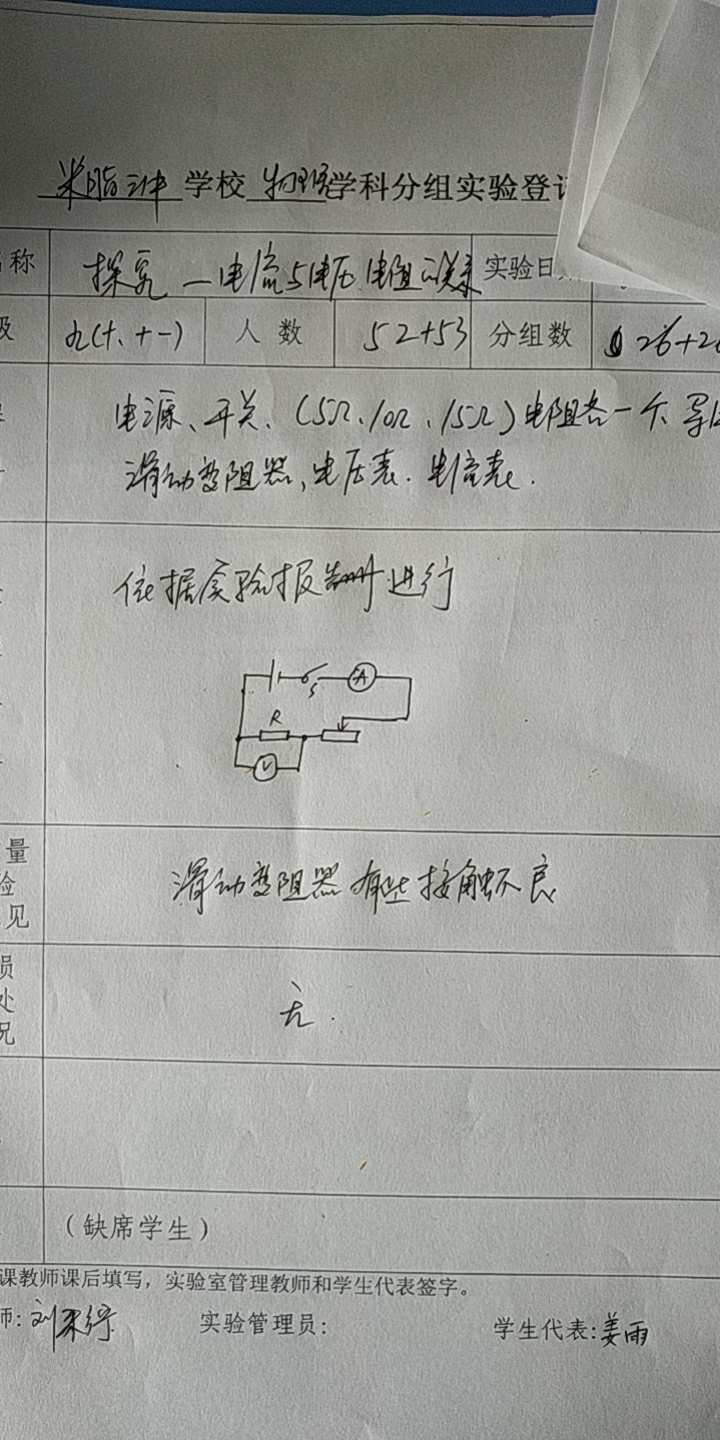 米脂三中 学校 物理 学科分组实验登记
名称 探究—电流与电压电阻的关系 实验日
级 九(十、十一) 人数 52+53 分组数 26+26
电源、开关、(5Ω、10Ω、15Ω)电阻各一个、导
滑动变阻器、电压表、电流表.
依据实验报告册进行
S A
R
V
量 滑动变阻器有些接触不良
验
见
损 无.
处
况
(缺席学生)
课教师课后填写,实验室管理教师和学生代表签字。
师: 实验管理员: 学生代表:姜雨